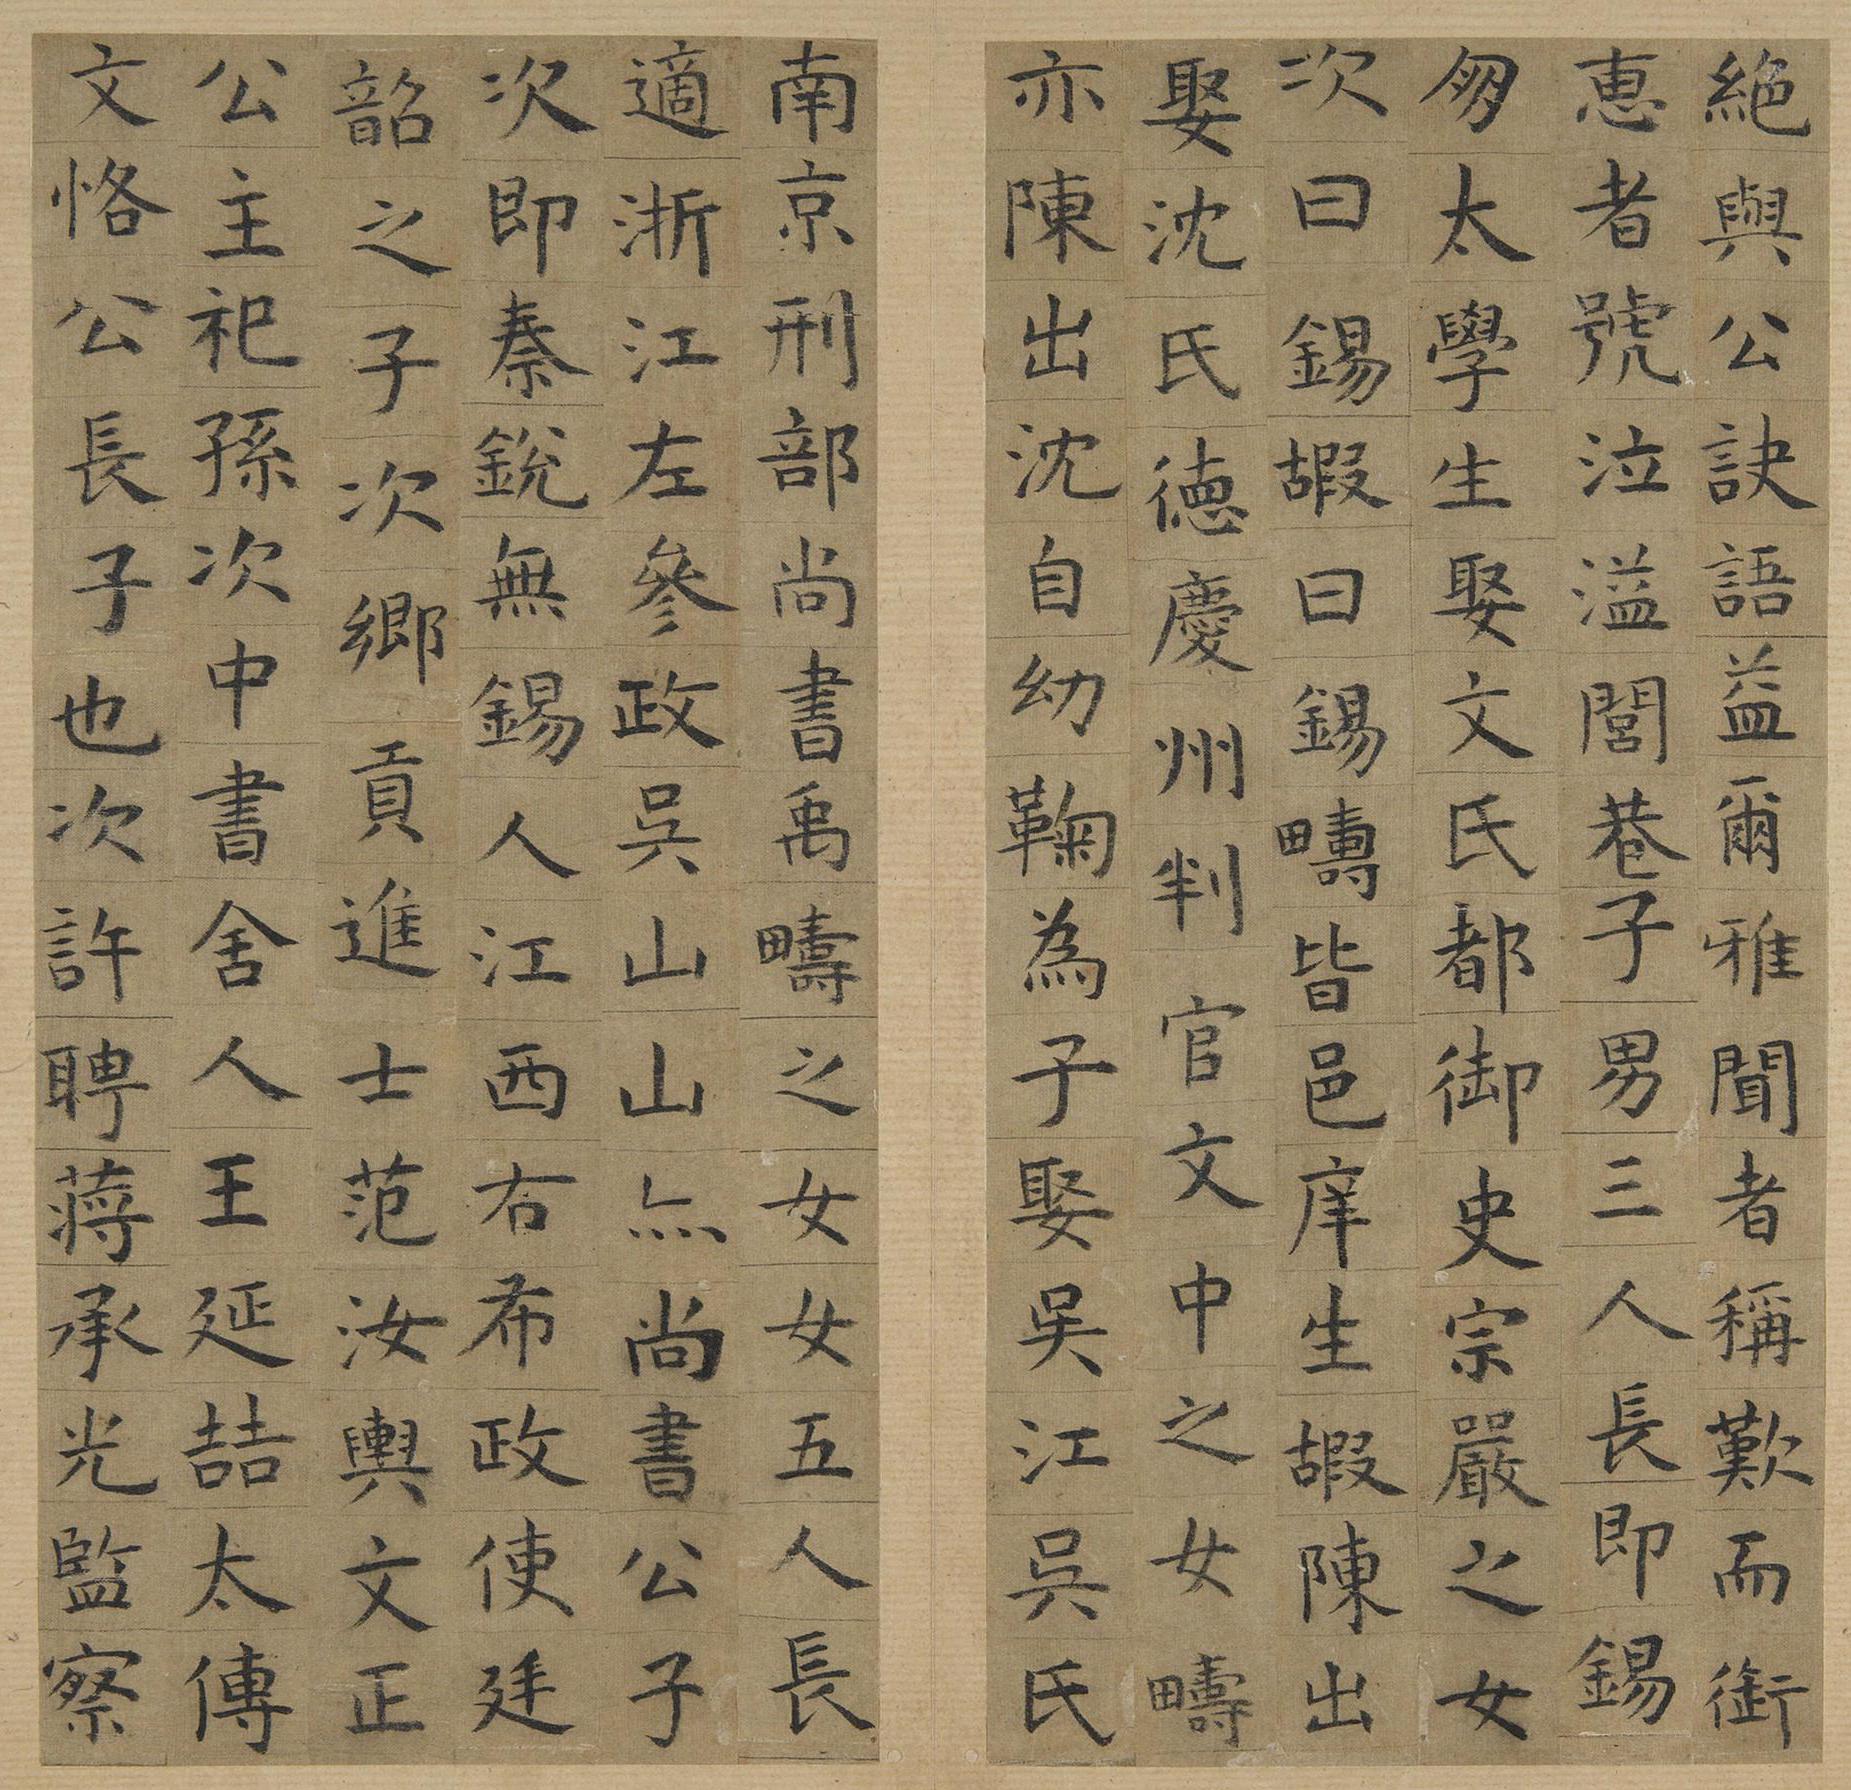 絕與公訣語益爾雅聞者稱歎而銜
恵者號泣溢閭巷子男三人長即錫
匆太學生娶文氏都御史宗嚴之女
次曰錫嘏曰錫疇皆邑庠生嘏陳出
娶沈氏德慶州判官文中之女疇
亦陳出沈自幼鞠為子娶吳江吳氏
南京刑部尚書禹疇之女女五人長
適浙江左參政吳山山尚書公子
次即秦銳無錫人江西右布政使廷
韶之子次鄉貢進士范汝輿文正
公主祀孫次中書舍人王延喆太傅
文恪公長子也次許聘蔣承光監察